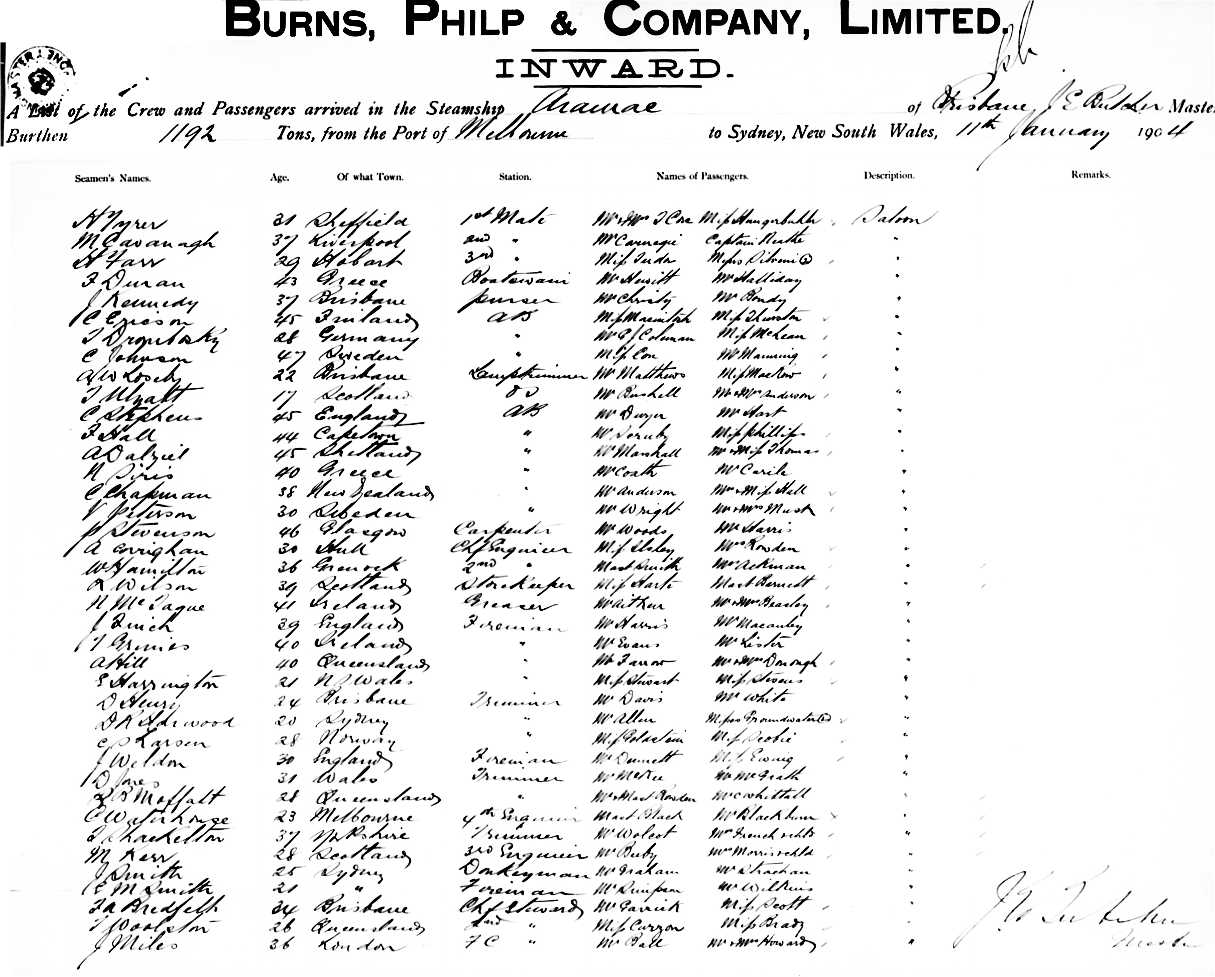 BURNS, PHILP & COMPANY, LIMITED.
INWARD.
A List of the Crew and Passengers arrived in the Steamship Aramac of Brisbane, J E Butcher Master
Burthen 1192 Tons, from the Port of Melbourne to Sydney, New South Wales, 11th January 1904
Seamen's Names. Age. Of what Town. Station. Names of Passengers. Description. Remarks.
H Tyrer 31 Sheffield 1st Mate Mr & Mrs T Cox Saloon
M Cavanagh 37 Liverpool 2nd " Mr Carnegie Captain "
H Farr 29 Hobart 3rd " Miss Tudor "
F Duran 43 Greece Boatswain Mr Hewitt Mr Halliday "
J Kennedy 37 Brisbane purser Mr Christy Mr Bondy "
C Ericson 45 Finland AB Miss Macintosh Miss Thurston "
T 28 Germany " Mr P J Colman Miss McLean "
C Johnson 47 Sweden " Miss Cox Mr Manning "
22 Brisbane Lamptrimmer Mr Matthews "
T Wyatt 17 Scotland OS Mr Bushell Mr & Mrs Anderson "
C Stephens 45 England AB Mr Dwyer Mr Hart "
F Hall 44 Capetown " Mr Miss Phillips "
A Dalziel 45 Shetland " Mr Marshall Mr & Miss Thomas "
N Siris 40 Greece " Mr Coath Mr Carile "
C Chapman 38 New Zealand " Mr Anderson Mr & Miss Hall "
V Peterson 30 Sweden " Mr Wright Mr & Mrs "
P Stevenson 46 Glasgow Carpenter Mr Woods Mr Harris "
A Corrighan 30 Hull Chf Engineer Miss Mrs Rowden "
W Hamilton 36 Greenock 2nd " Mast Smith Mr Ackman "
R Wilson 39 Scotland Storekeeper Miss Harte Mast Barnett "
N McTague 41 Ireland Greaser Mr Aitken Mr & Mrs Heasley "
J Finch 39 England Fireman Mr Harris Mr Macauley "
T Grimes 40 Ireland " Mr Evans Mr Lister "
A Hill 40 Queensland " Mr Farrow Mr & Mrs Donough "
E Harrington 21 N S Wales " Miss Stewart Miss Stevens "
D Henry 24 Brisbane Trimmer Mr Davis Mr White "
20 Sydney " Mr Allen Misses Groundwater (2) "
C P Larsen 28 Norway " Miss Goldstein Miss Scobie "
J Weldon 30 England Fireman Mr Dunnett Miss Ewing "
D Jones 31 Wales Trimmer Mr McKee Mr McGrath "
Moffatt 28 Queensland " Mr & Mast Rowden Mr Whittall "
C Waterhouse 23 Melbourne 4th Engineer Mast Black Mr Blackburn "
T Shackelton 37 Yorkshire Trimmer Mr Wolcot Mrs French & chld "
M Kerr 28 Scotland 3rd Engineer Mr Buby Mrs Morris & chld "
J Smith 25 Sydney Donkeyman Mr Graham Mr Strachan "
E M Smith 21 " Fireman Mr Simpson Mr Wilkins "
F A Bredfelt 34 Brisbane Chf Steward Mr Garrick Miss Scott "
T Woolston 26 Queensland 2nd " Miss Curzon Miss Brady "
J Miles 36 London F C " Mr Ball Mr & Mrs Howard "
Master